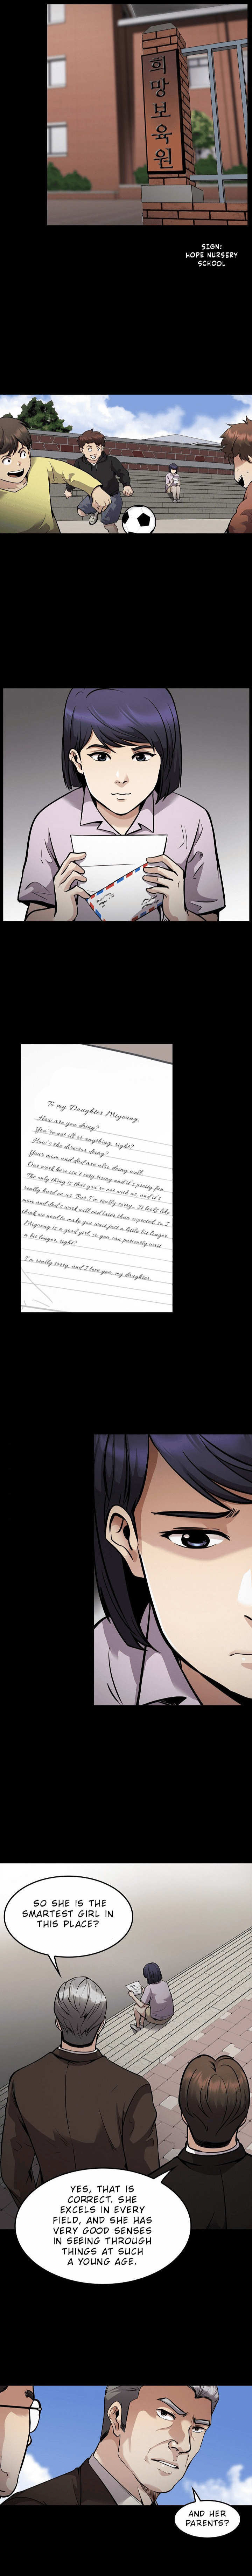 희망보육원
SIGN:
HOPE NURSERY
SCHOOL
To my Daughter Miyoung,
How are you doing?
You're not ill or anything, right?
How's the director doing?
Your mom and dad are also doing well.
Our work here isn't very tiring and it's pretty fun.
The only thing is that you're not with us, and it's
really hard on us. But I'm really sorry. It looks like
mom and dad's work will end later than expected, so I
think we need to make you wait just a little bit longer.
Miyoung is a good girl, so you can patiently wait
a bit longer, right?
I'm really sorry, and I love you, my daughter.
SO SHE IS THE
SMARTEST GIRL IN
THIS PLACE?
YES, THAT IS
CORRECT. SHE
EXCELS IN EVERY
FIELD, AND SHE HAS
VERY GOOD SENSES
IN SEEING THROUGH
THINGS AT SUCH
A YOUNG AGE.
AND HER
PARENTS?